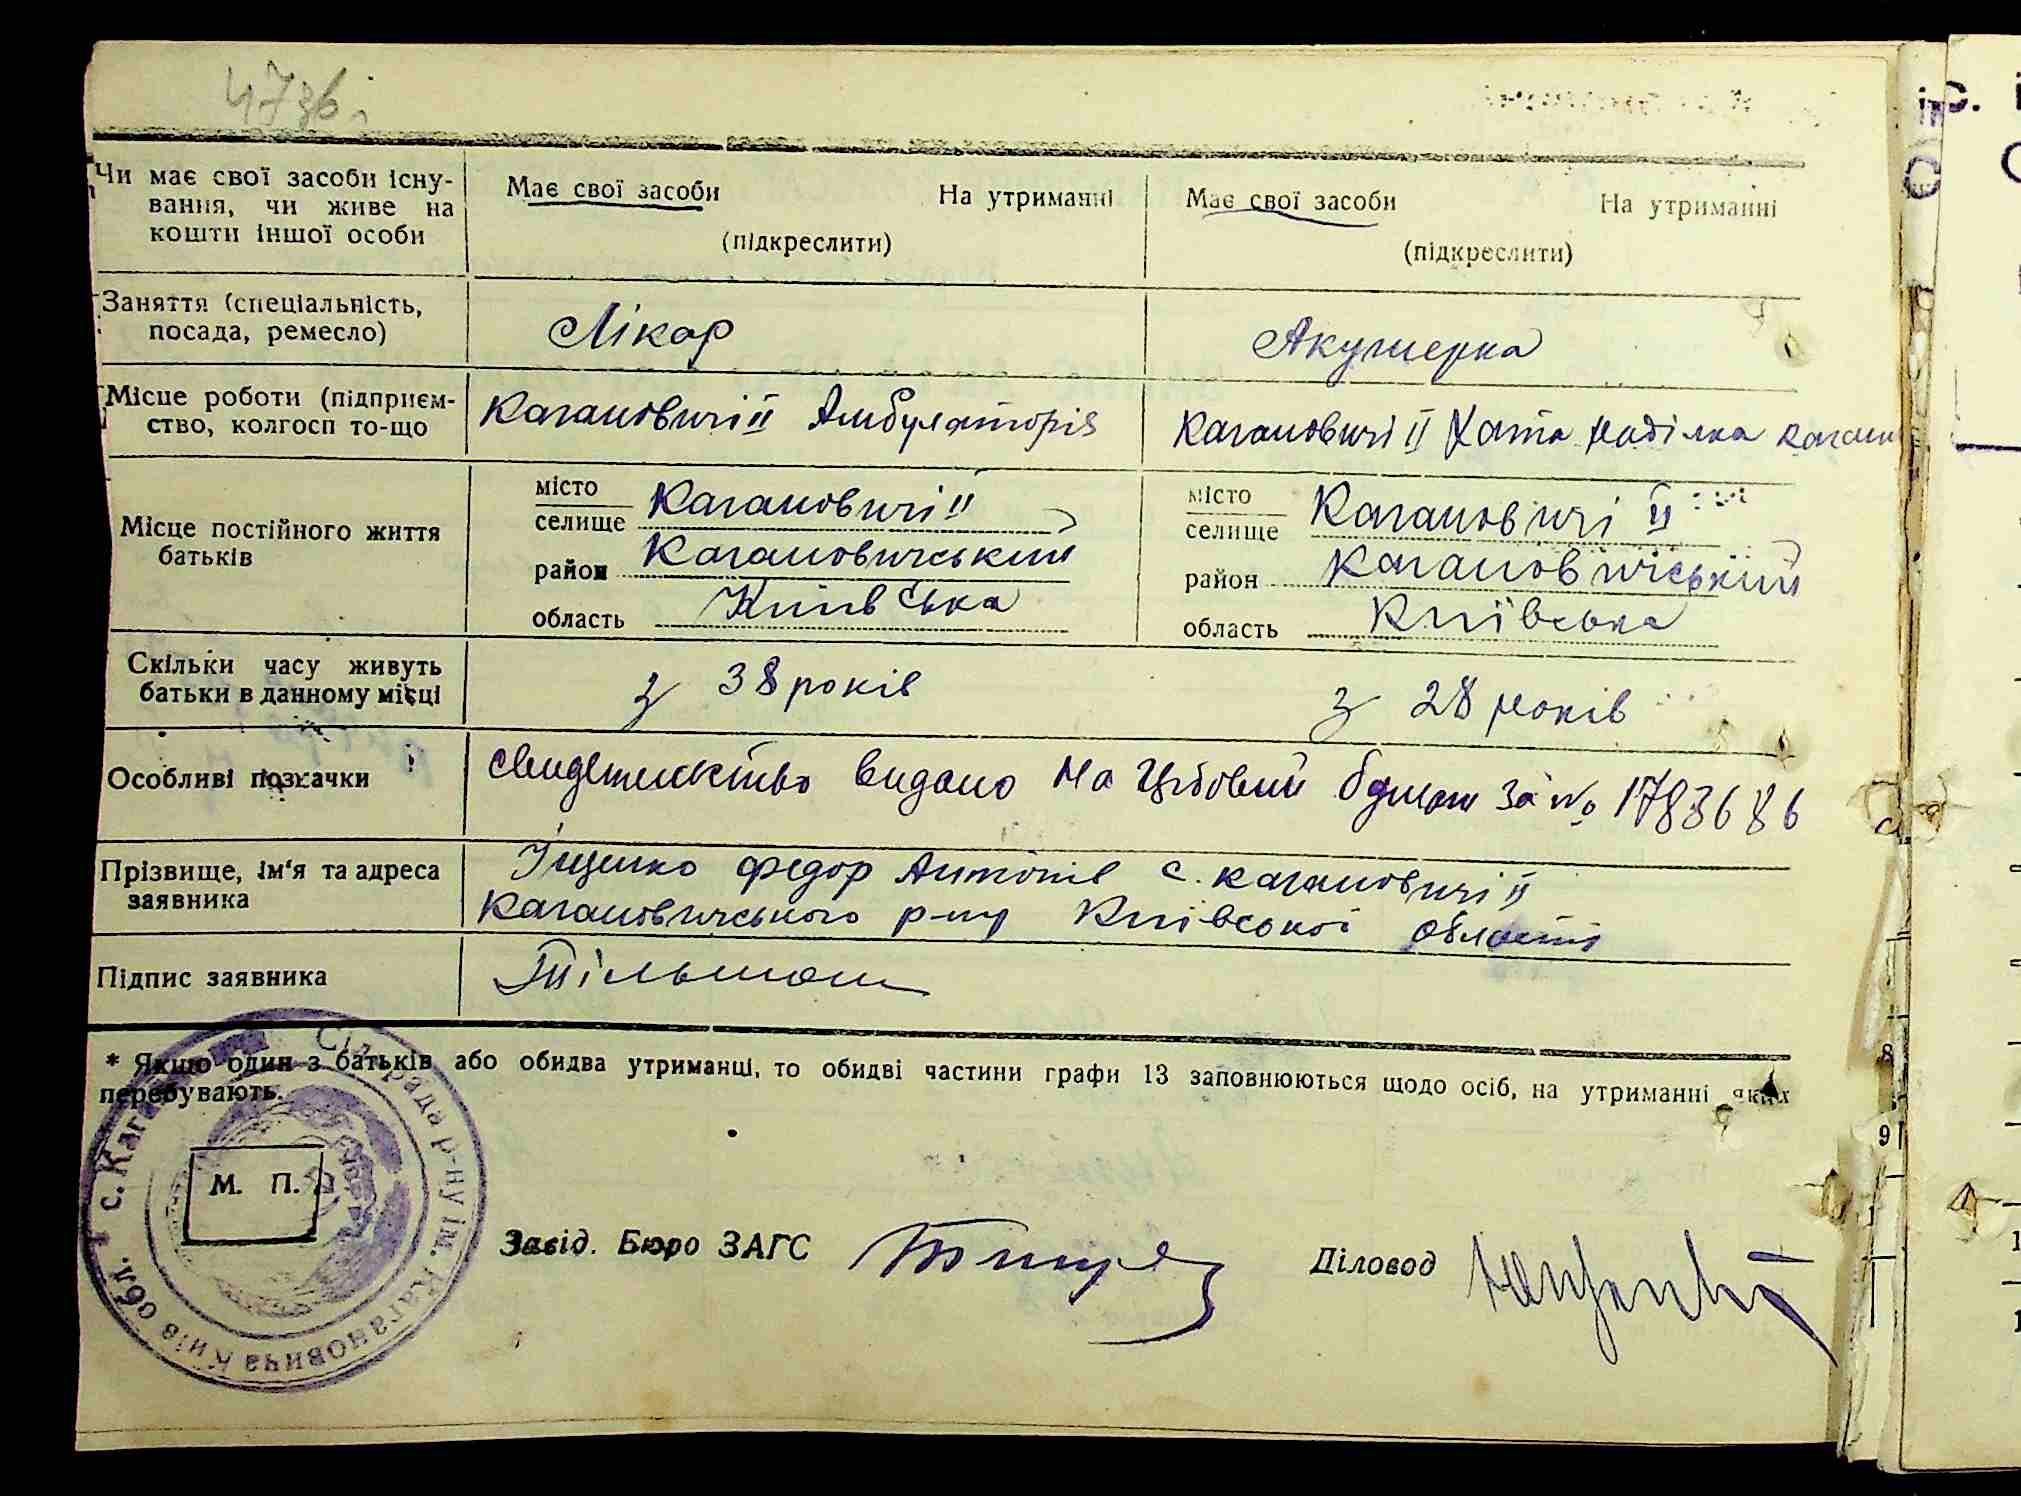 473б.
Чи має свої засоби існу- Має свої засоби На утриманні Має свої засоби На утриманні
вання, чи живе на
кошти іншої особи (підкреслити) (підкреслити)
Заняття (спеціальність, Лікар Акушерка
посада, ремесло)
Місце роботи (підприєм- Кагановичі ІІ Амбулаторія Кагановичі ІІ Хата
ство, колгосп то-що
місто Кагановичі ІІ місто Кагановичі ІІ
селище селище
Місце постійного життя район Кагановичський район Кагановичський
батьків
область Київська область Київська
Скільки часу живуть з 38 років з 28 років
батьки в данному місці
Особливі позначки видано на бумаги за № 1783686
Прізвище, ім'я та адреса Іщенко Федор Антонів с. Кагановичі ІІ
заявника Кагановичського р-ну Київської області
Підпис заявника
* Якщо один з батьків або обидва утриманці, то обидві частини графи 13 заповнюються щодо осіб, на утриманні яких
перебувають.
Сільрада р-ну ім. Кагановича Київ обл. с. Кага
М. П.
Завід. Бюро ЗАГС Діловод
8
9